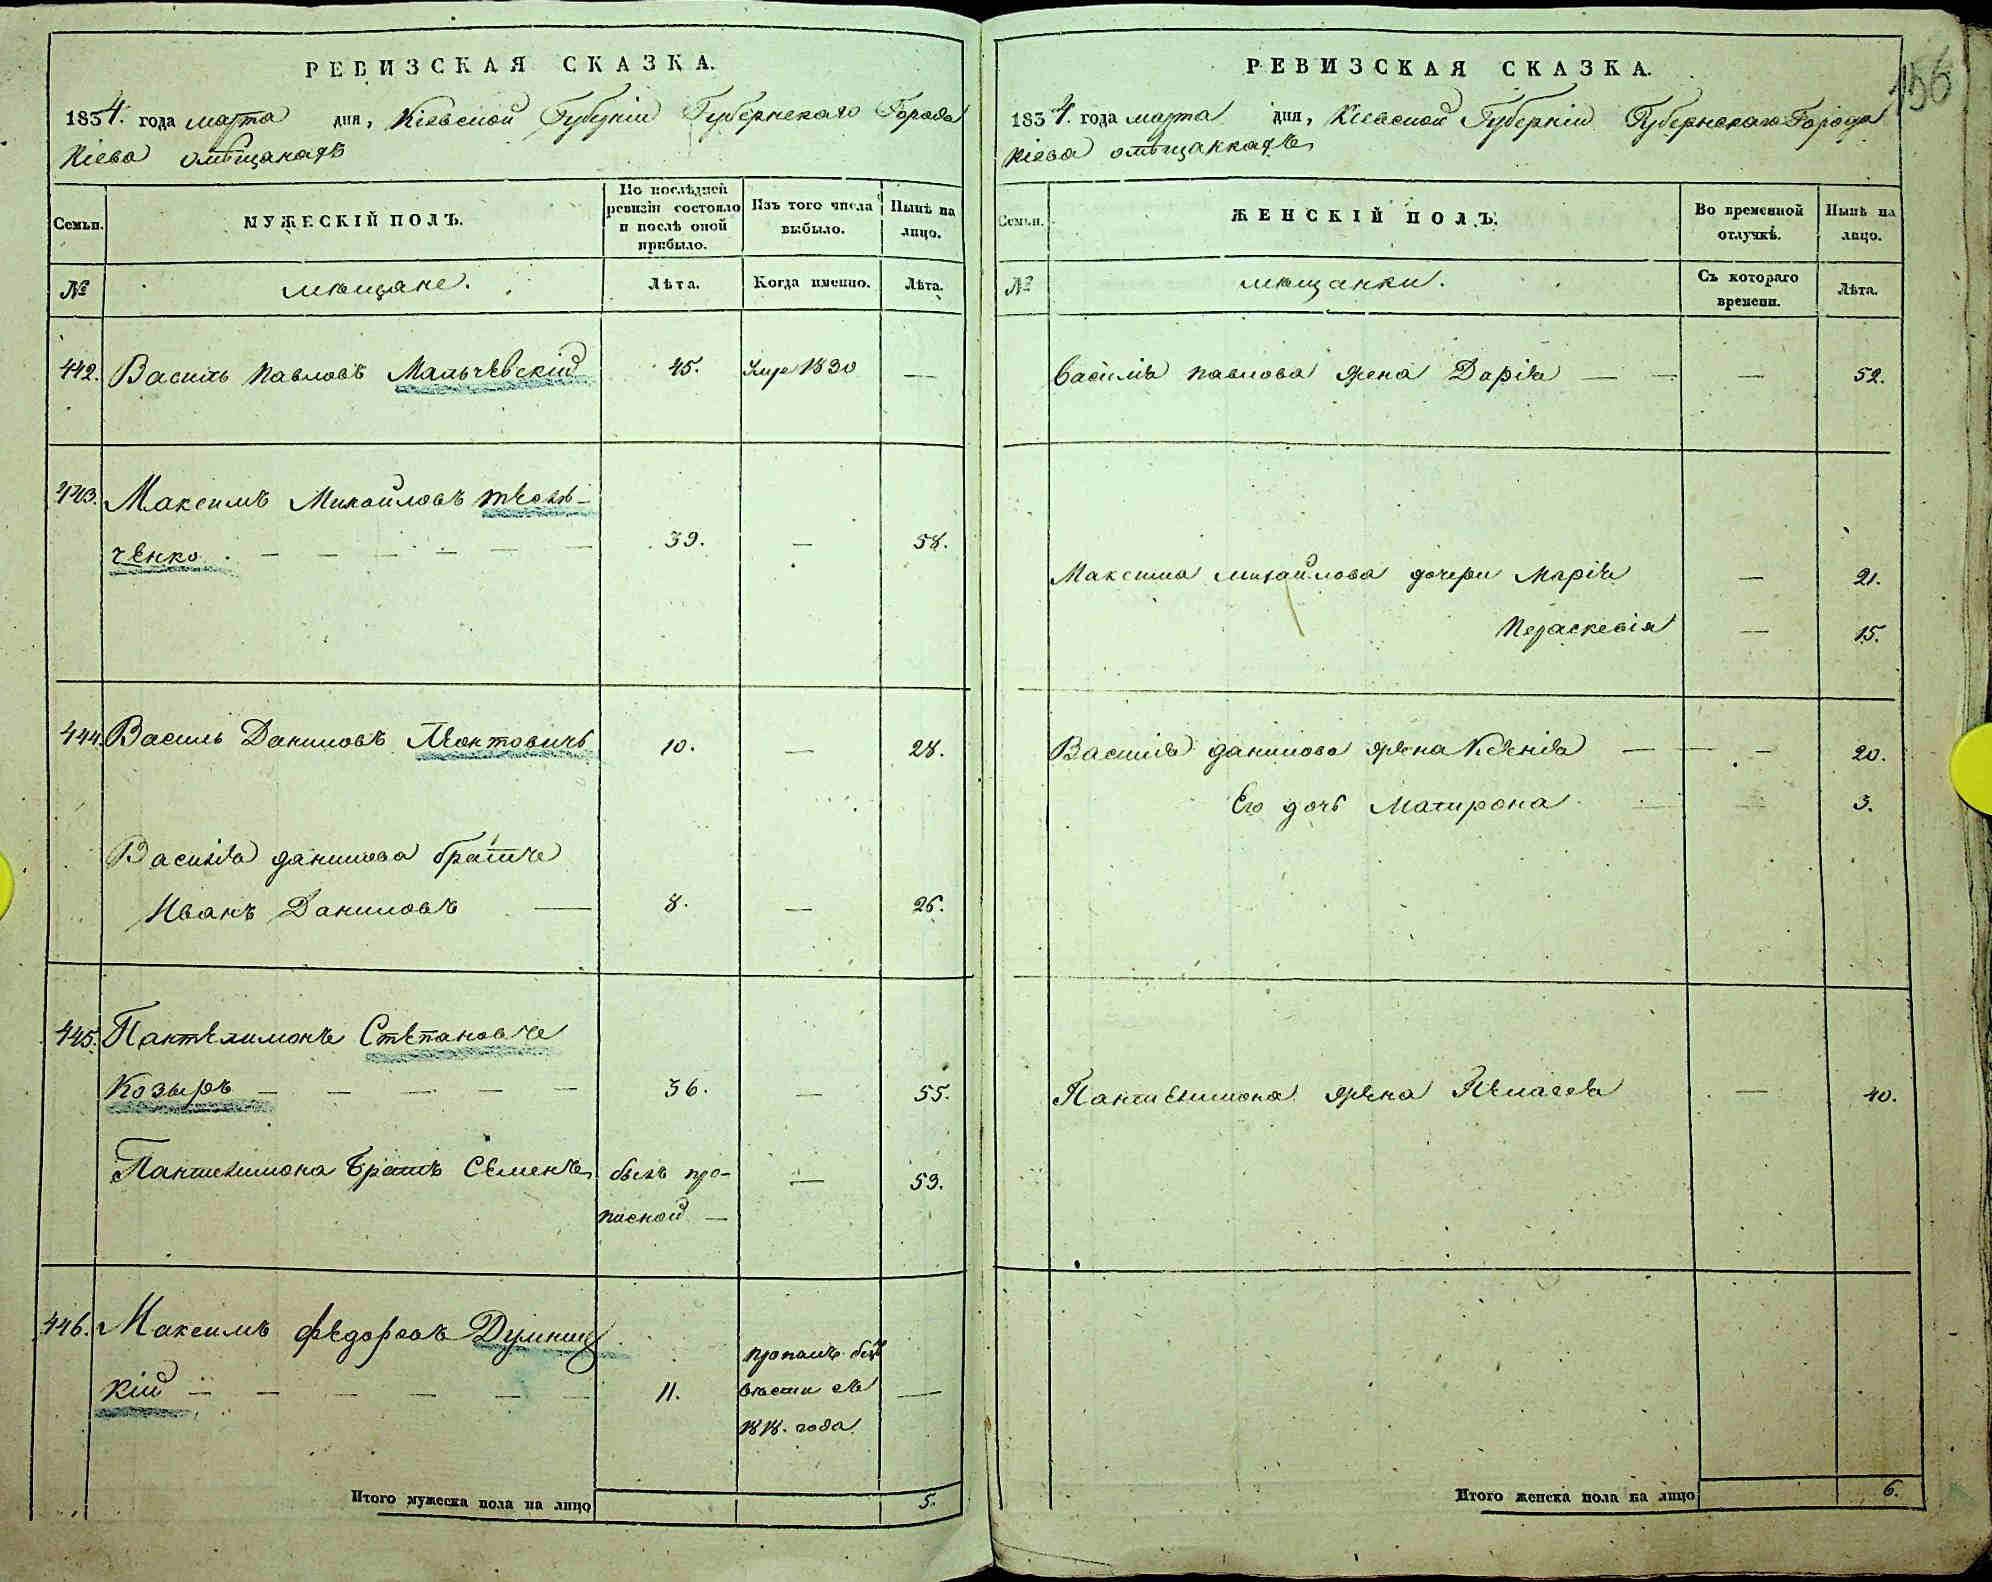 РЕВИЗСКАЯ СКАЗКА.
1834. года марта дня, Кіевской Губерніи Губернскаго Города
Кіева омѣщанахъ
Семьи.
МУЖЕСКІЙ ПОЛЪ.
По послѣдней
ревизіи состояло
и послѣ оной
прибыло.
Изъ того числа
выбыло.
Нынѣ на
лицо.
№
мѣщане.
Лѣта.
Когда именно.
Лѣта.
442. Василь Павловъ Мальчевскій 45. Умре 1830 —
443. Максимъ Михайловъ
ченко. — — — — — — 39. — 58.
444. Василь Даниловъ Леонтовичъ 10. — 28.
Василія данилова братъ
Иванъ Даниловъ — 8. — 26.
445. Пантелимонъ Степановъ
Козыръ — — — — — 36. — 55.
Пантелимона братъ Семенъ былъ про-
писной — — 53.
446. Максимъ Федоровъ Думниц
кій — — — — — — 11. пропалъ безъ
вѣсти съ
1818. года —
Итого мужеска пола на лицо 5.
РЕВИЗСКАЯ СКАЗКА.
156
1834. года марта дня, Кіевской Губерніи Губернскаго Города
Кіева омѣщанкахъ
Семьи.
ЖЕНСКІЙ ПОЛЪ.
Во временной
отлучкѣ.
Нынѣ на
лицо.
№
мѣщанки.
Съ котораго
времени.
Лѣта.
Василія павлова жена Дарія — — — 52.
Максима михайлова дочери Марія — 21.
Параскевія — 15.
Василія данилова жена Ксенія — — — 20.
Его дочь Матирона — — 3.
Пантелимона жена Пелагея — 40.
Итого женска пола на лицо 6.